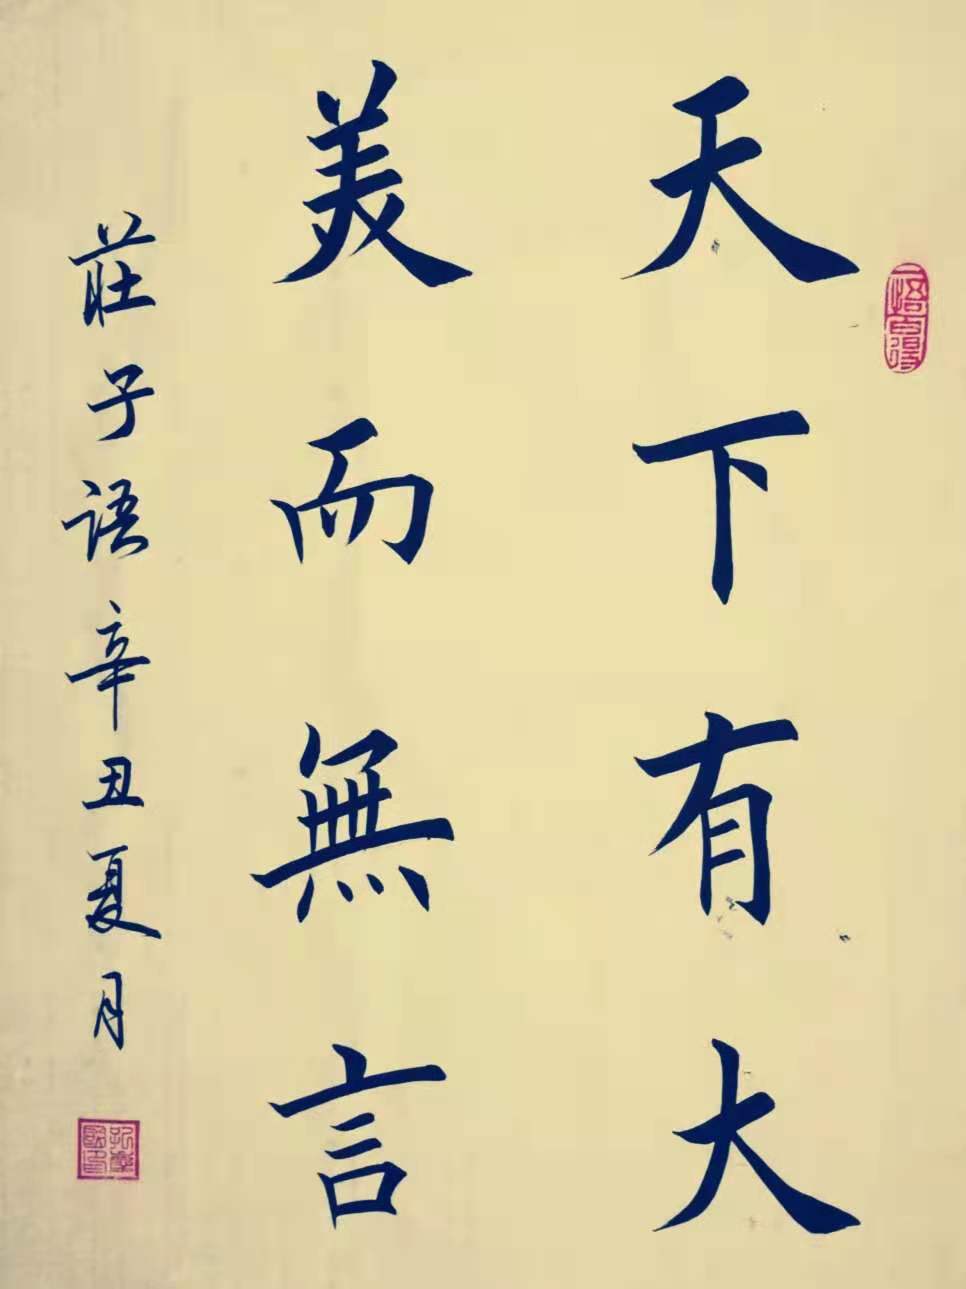 天下有大
美而無言
莊子語辛丑夏月